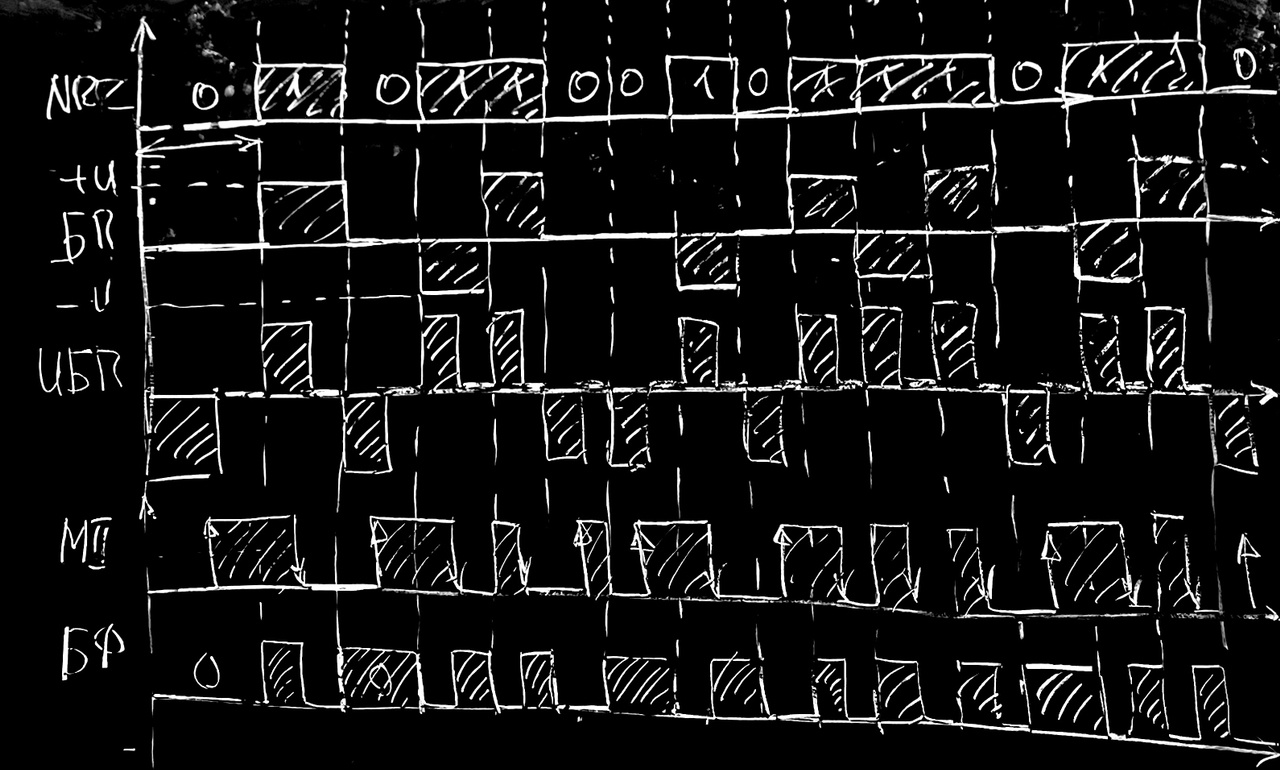 NRZ 0 1 0 1 1 0 0 1 0 1 1 1 0 1 1 0
+U
БП
-U
ИБП
МII
БФ 0 0
-